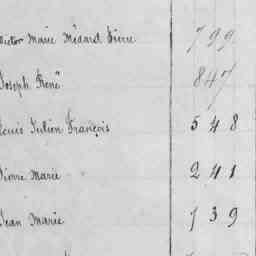 Victor Marie Médard Pierre 799
Joseph René 847
Louis Julien François 548
Pierre Marie 241
Jean Marie 739